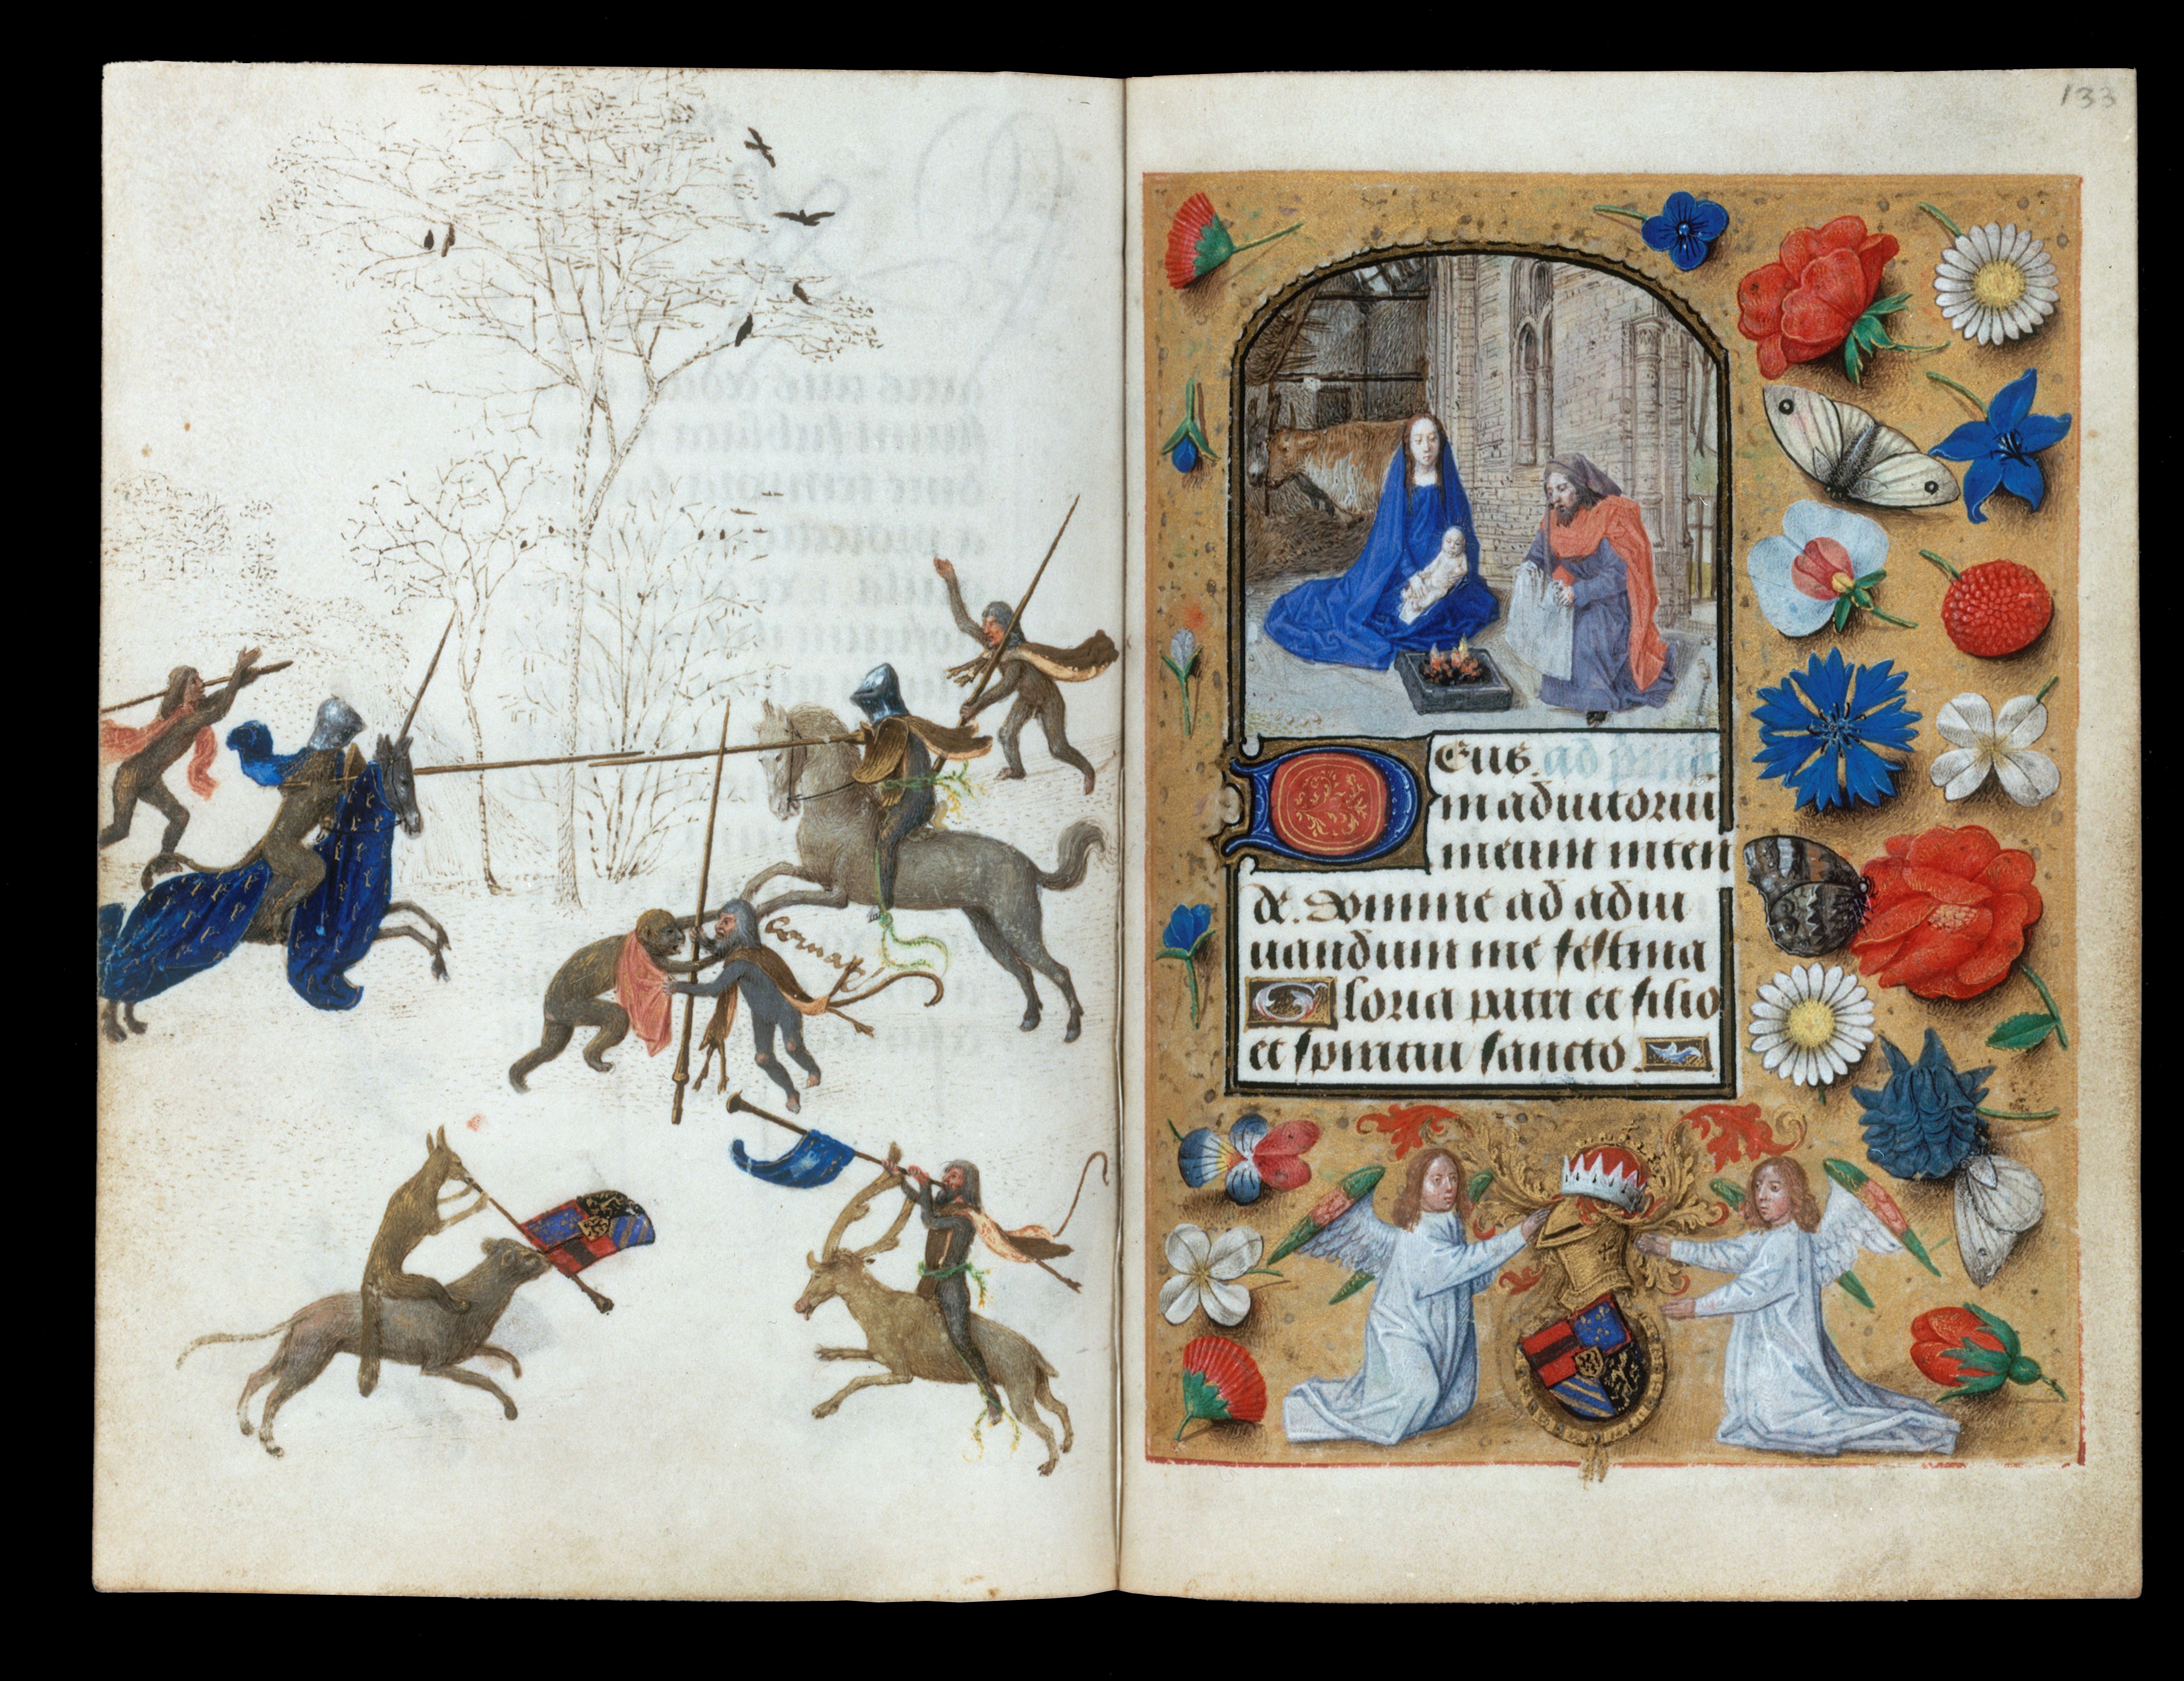 Cornap
133
Deus ad prim̄
in adiutoriū
meum inten
de. Domine ad adiu
uandum me festina
Gloria patri et filio
et spiritui sancto.